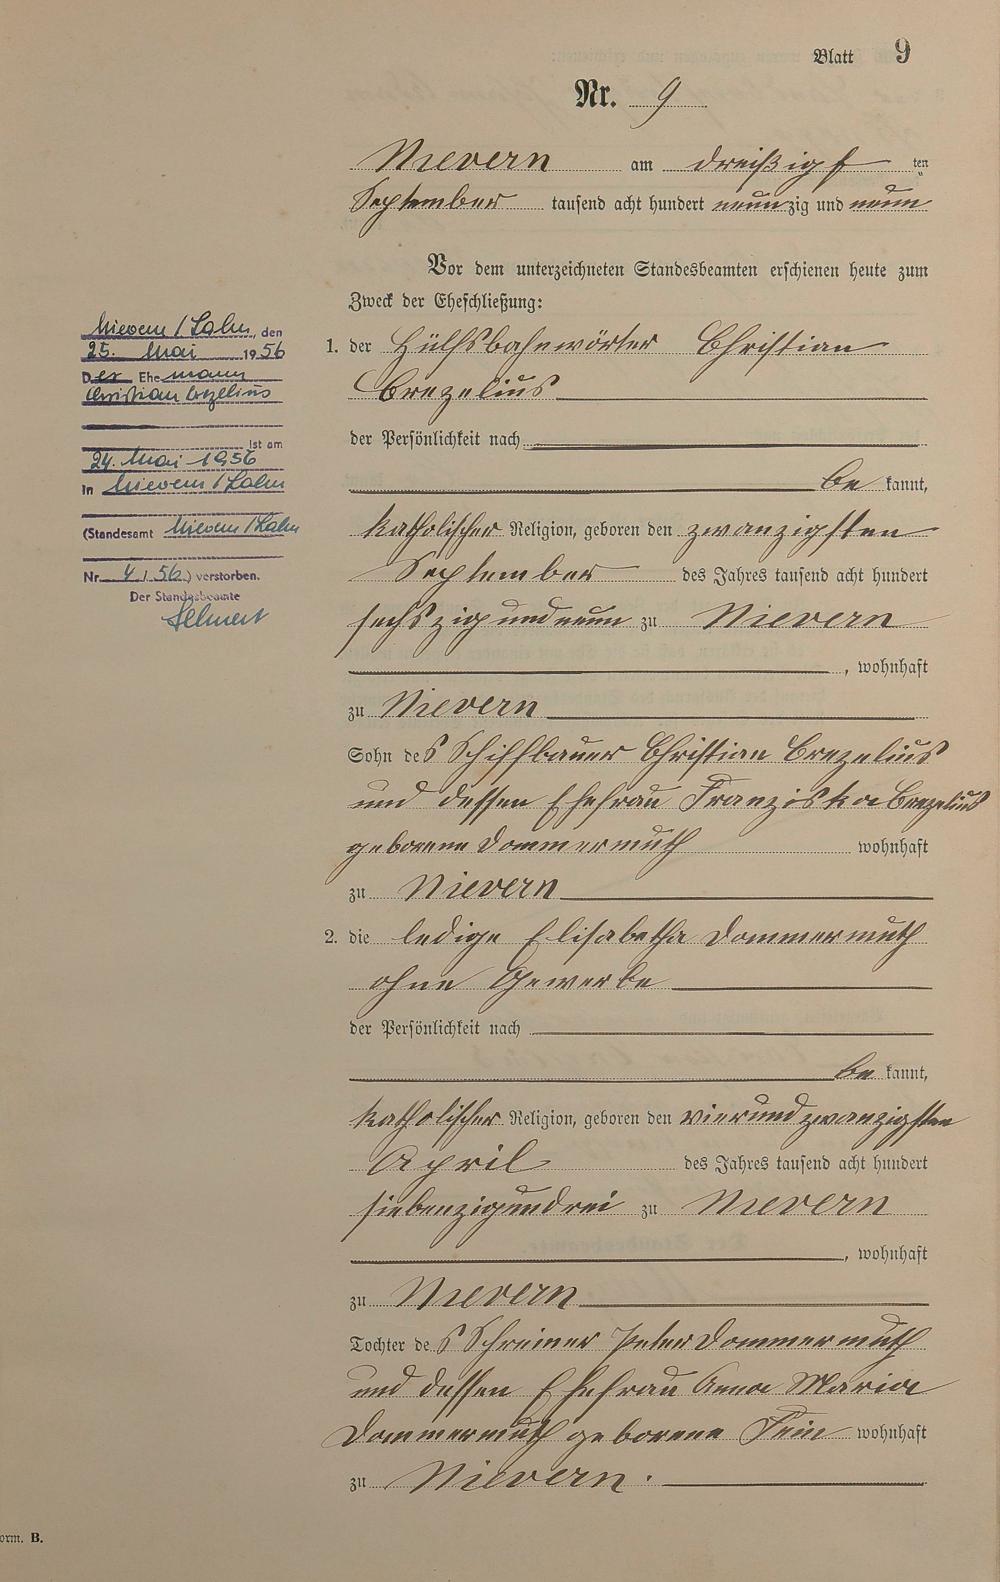 Blatt 9
Nr. 9
Nievern am dreißigsten
September tausend acht hundert neunzig und neun
Vor dem unterzeichneten Standesbeamten erschienen heute zum
Zweck der Eheschließung:
1. der Hülfsbahnwärter Christian
Crezelius
der Persönlichkeit nach
be kannt,
katholischer Religion, geboren den zwanzigsten
September des Jahres tausend acht hundert
sechszigundneun zu Nievern
, wohnhaft
zu Nievern
Sohn des Schiffbauer Christian Crezelius
und dessen Ehefrau Franziska Crezelius
geborene Dommermuth wohnhaft
zu Nievern
2. die ledige Elisabetha Dommermuth
ohne Gewerbe
der Persönlichkeit nach
be kannt,
katholischer Religion, geboren den vierundzwanzigsten
April des Jahres tausend acht hundert
siebenzigunddrei zu Nievern
, wohnhaft
zu Nievern
Tochter des Schreiner Peter Dommermuth
und dessen Ehefrau Anna Maria
Dommermuth geborene wohnhaft
zu Nievern.
Nievern / Lahn, den
25. Mai 1956
Der Ehemann
Christian Crezelius
ist am
24. Mai 1956
in Nievern / Lahn
(Standesamt Nievern / Lahn
Nr. 4 / 56) verstorben.
Der Standesbeamte
orm. B.